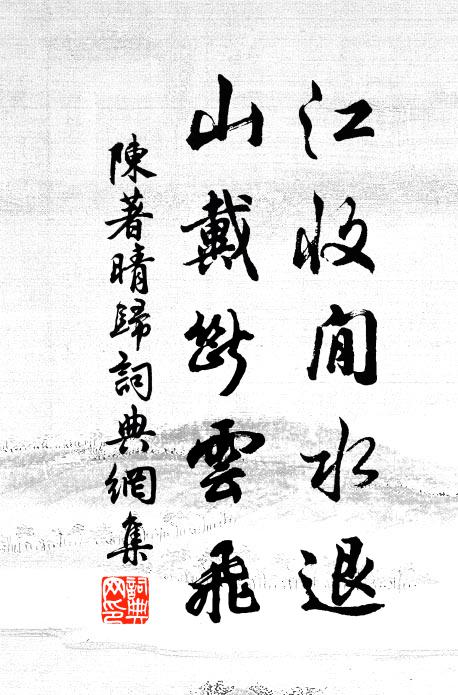 江收閒水退
山戴斷雲飛
陳著晴歸詞典網集
詞典